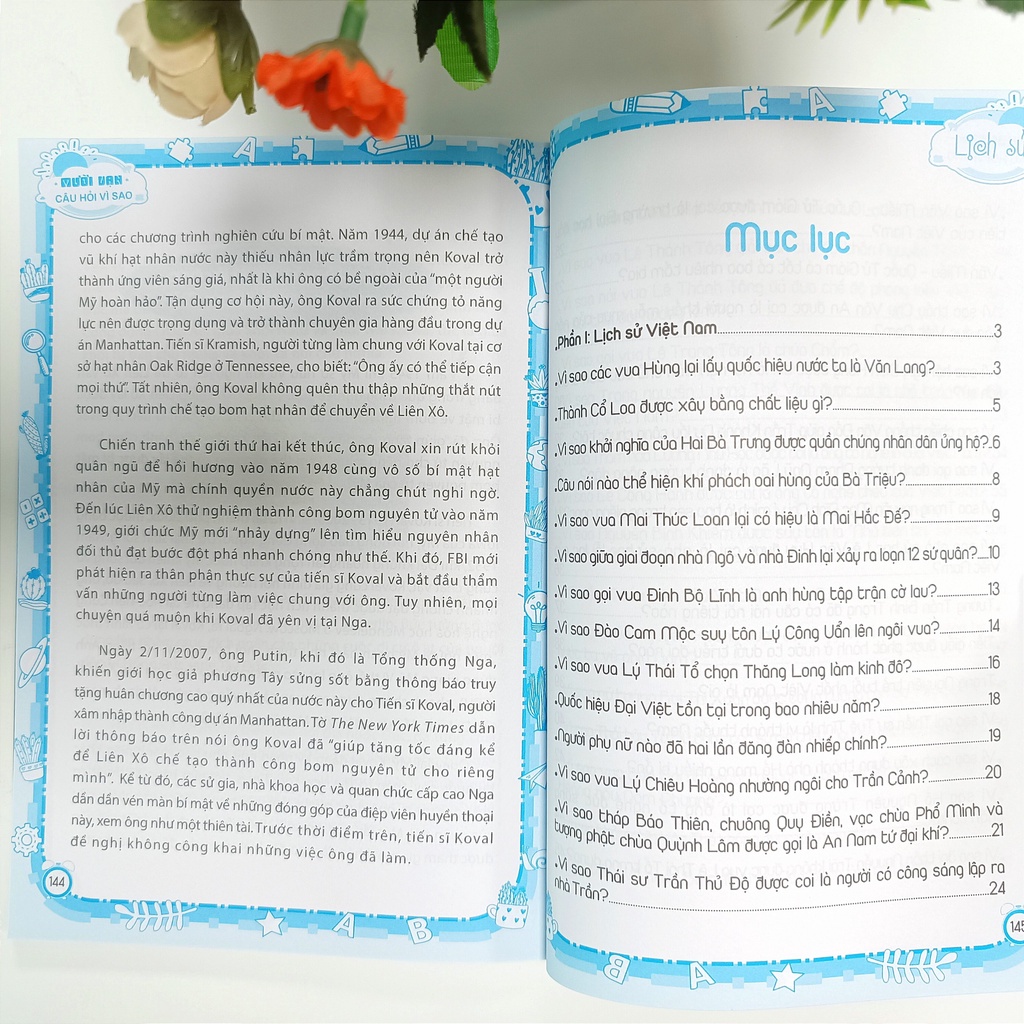 MƯỜI VẠN
CÂU HỎI VÌ SAO
cho các chương trình nghiên cứu bí mật. Năm 1944, dự án chế tạo
vũ khí hạt nhân nước này thiếu nhân lực trầm trọng nên Koval trở
thành ứng viên sáng giá, nhất là khi ông có bề ngoài của “một người
Mỹ hoàn hảo”. Tận dụng cơ hội này, ông Koval ra sức chứng tỏ năng
lực nên được trọng dụng và trở thành chuyên gia hàng đầu trong dự
án Manhattan. Tiến sĩ Kramish, người từng làm chung với Koval tại cơ
sở hạt nhân Oak Ridge ở Tennessee, cho biết: “Ông ấy có thể tiếp cận
mọi thứ”. Tất nhiên, ông Koval không quên thu thập những thắt nút
trong quy trình chế tạo bom hạt nhân để chuyển về Liên Xô.
Chiến tranh thế giới thứ hai kết thúc, ông Koval xin rút khỏi
quân ngũ để hồi hương vào năm 1948 cùng vô số bí mật hạt
nhân của Mỹ mà chính quyền nước này chẳng chút nghi ngờ.
Đến lúc Liên Xô thử nghiệm thành công bom nguyên tử vào năm
1949, giới chức Mỹ mới “nhảy dựng” lên tìm hiểu nguyên nhân
đối thủ đạt bước đột phá nhanh chóng như thế. Khi đó, FBI mới
phát hiện ra thân phận thực sự của tiến sĩ Koval và bắt đầu thẩm
vấn những người từng làm việc chung với ông. Tuy nhiên, mọi
chuyện quá muộn khi Koval đã yên vị tại Nga.
Ngày 2/11/2007, ông Putin, khi đó là Tổng thống Nga,
khiến giới học giả phương Tây sửng sốt bằng thông báo truy
tặng huân chương cao quý nhất của nước này cho Tiến sĩ Koval, người
xâm nhập thành công dự án Manhattan. Tờ The New York Times dẫn
lời thông báo trên nói ông Koval đã “giúp tăng tốc đáng kể
để Liên Xô chế tạo thành công bom nguyên tử cho riêng
mình”. Kể từ đó, các sử gia, nhà khoa học và quan chức cấp cao Nga
dần dần vén màn bí mật về những đóng góp của điệp viên huyền thoại
này, xem ông như một thiên tài. Trước thời điểm trên, tiến sĩ Koval
đề nghị không công khai những việc ông đã làm.
144
Lịch sử
Mục lục
.Phần I: Lịch sử Việt Nam..........3
.Vì sao các vua Hùng lại lấy quốc hiệu nước ta là Văn Lang?..........3
.Thành Cổ Loa được xây bằng chất liệu gì?..........5
.Vì sao khởi nghĩa của Hai Bà Trưng được quần chúng nhân dân ủng hộ?..6
.Câu nói nào thể hiện khí phách oai hùng của Bà Triệu?..........8
.Vì sao vua Mai Thúc Loan lại có hiệu là Mai Hắc Đế?..........9
.Vì sao giữa giai đoạn nhà Ngô và nhà Đinh lại xảy ra loạn 12 sứ quân?....10
.Vì sao gọi vua Đinh Bộ Lĩnh là anh hùng tập trận cờ lau?..........13
.Vì sao Đào Cam Mộc suy tôn Lý Công Uẩn lên ngôi vua?..........14
.Vì sao vua Lý Thái Tổ chọn Thăng Long làm kinh đô?..........16
.Quốc hiệu Đại Việt tồn tại trong bao nhiêu năm?..........18
.Người phụ nữ nào đã hai lần đăng đàn nhiếp chính?..........19
.Vì sao vua Lý Chiêu Hoàng nhường ngôi cho Trần Cảnh?..........20
.Vì sao tháp Báo Thiên, chuông Quy Điền, vạc chùa Phổ Minh và
tượng phật chùa Quỳnh Lâm được gọi là An Nam tứ đại khí?..........21
.Vì sao Thái sư Trần Thủ Độ được coi là người có công sáng lập ra
nhà Trần?..........24
145